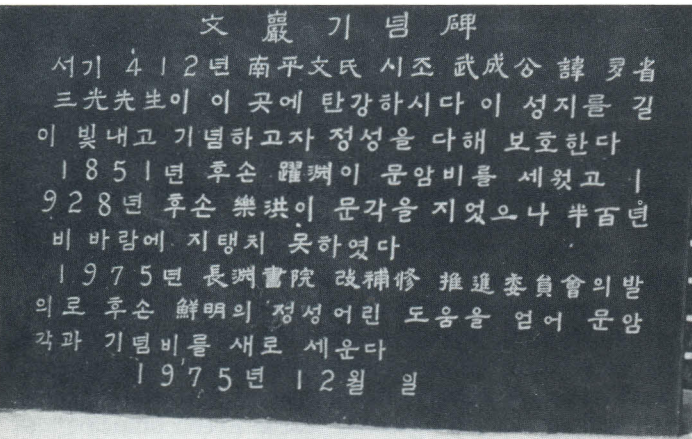 文巖기념碑
서기 412년 南平文氏 시조 武成公 諱 多省
三光先生이 이 곳에 탄강하시다 이 성지를 길
이 빛내고 기념하고자 정성을 다해 보호한다
1851년 후손 躍淵이 문암비를 세웠고 1
928년 후손 樂洪이 문각을 지었으나 半百년
비 바람에 지탱치 못하였다
1975년 長淵書院 改補修 推進委員會의 발
의로 후손 鮮明의 정성어린 도움을 얻어 문암
각과 기념비를 새로 세운다
1975년 12월 일